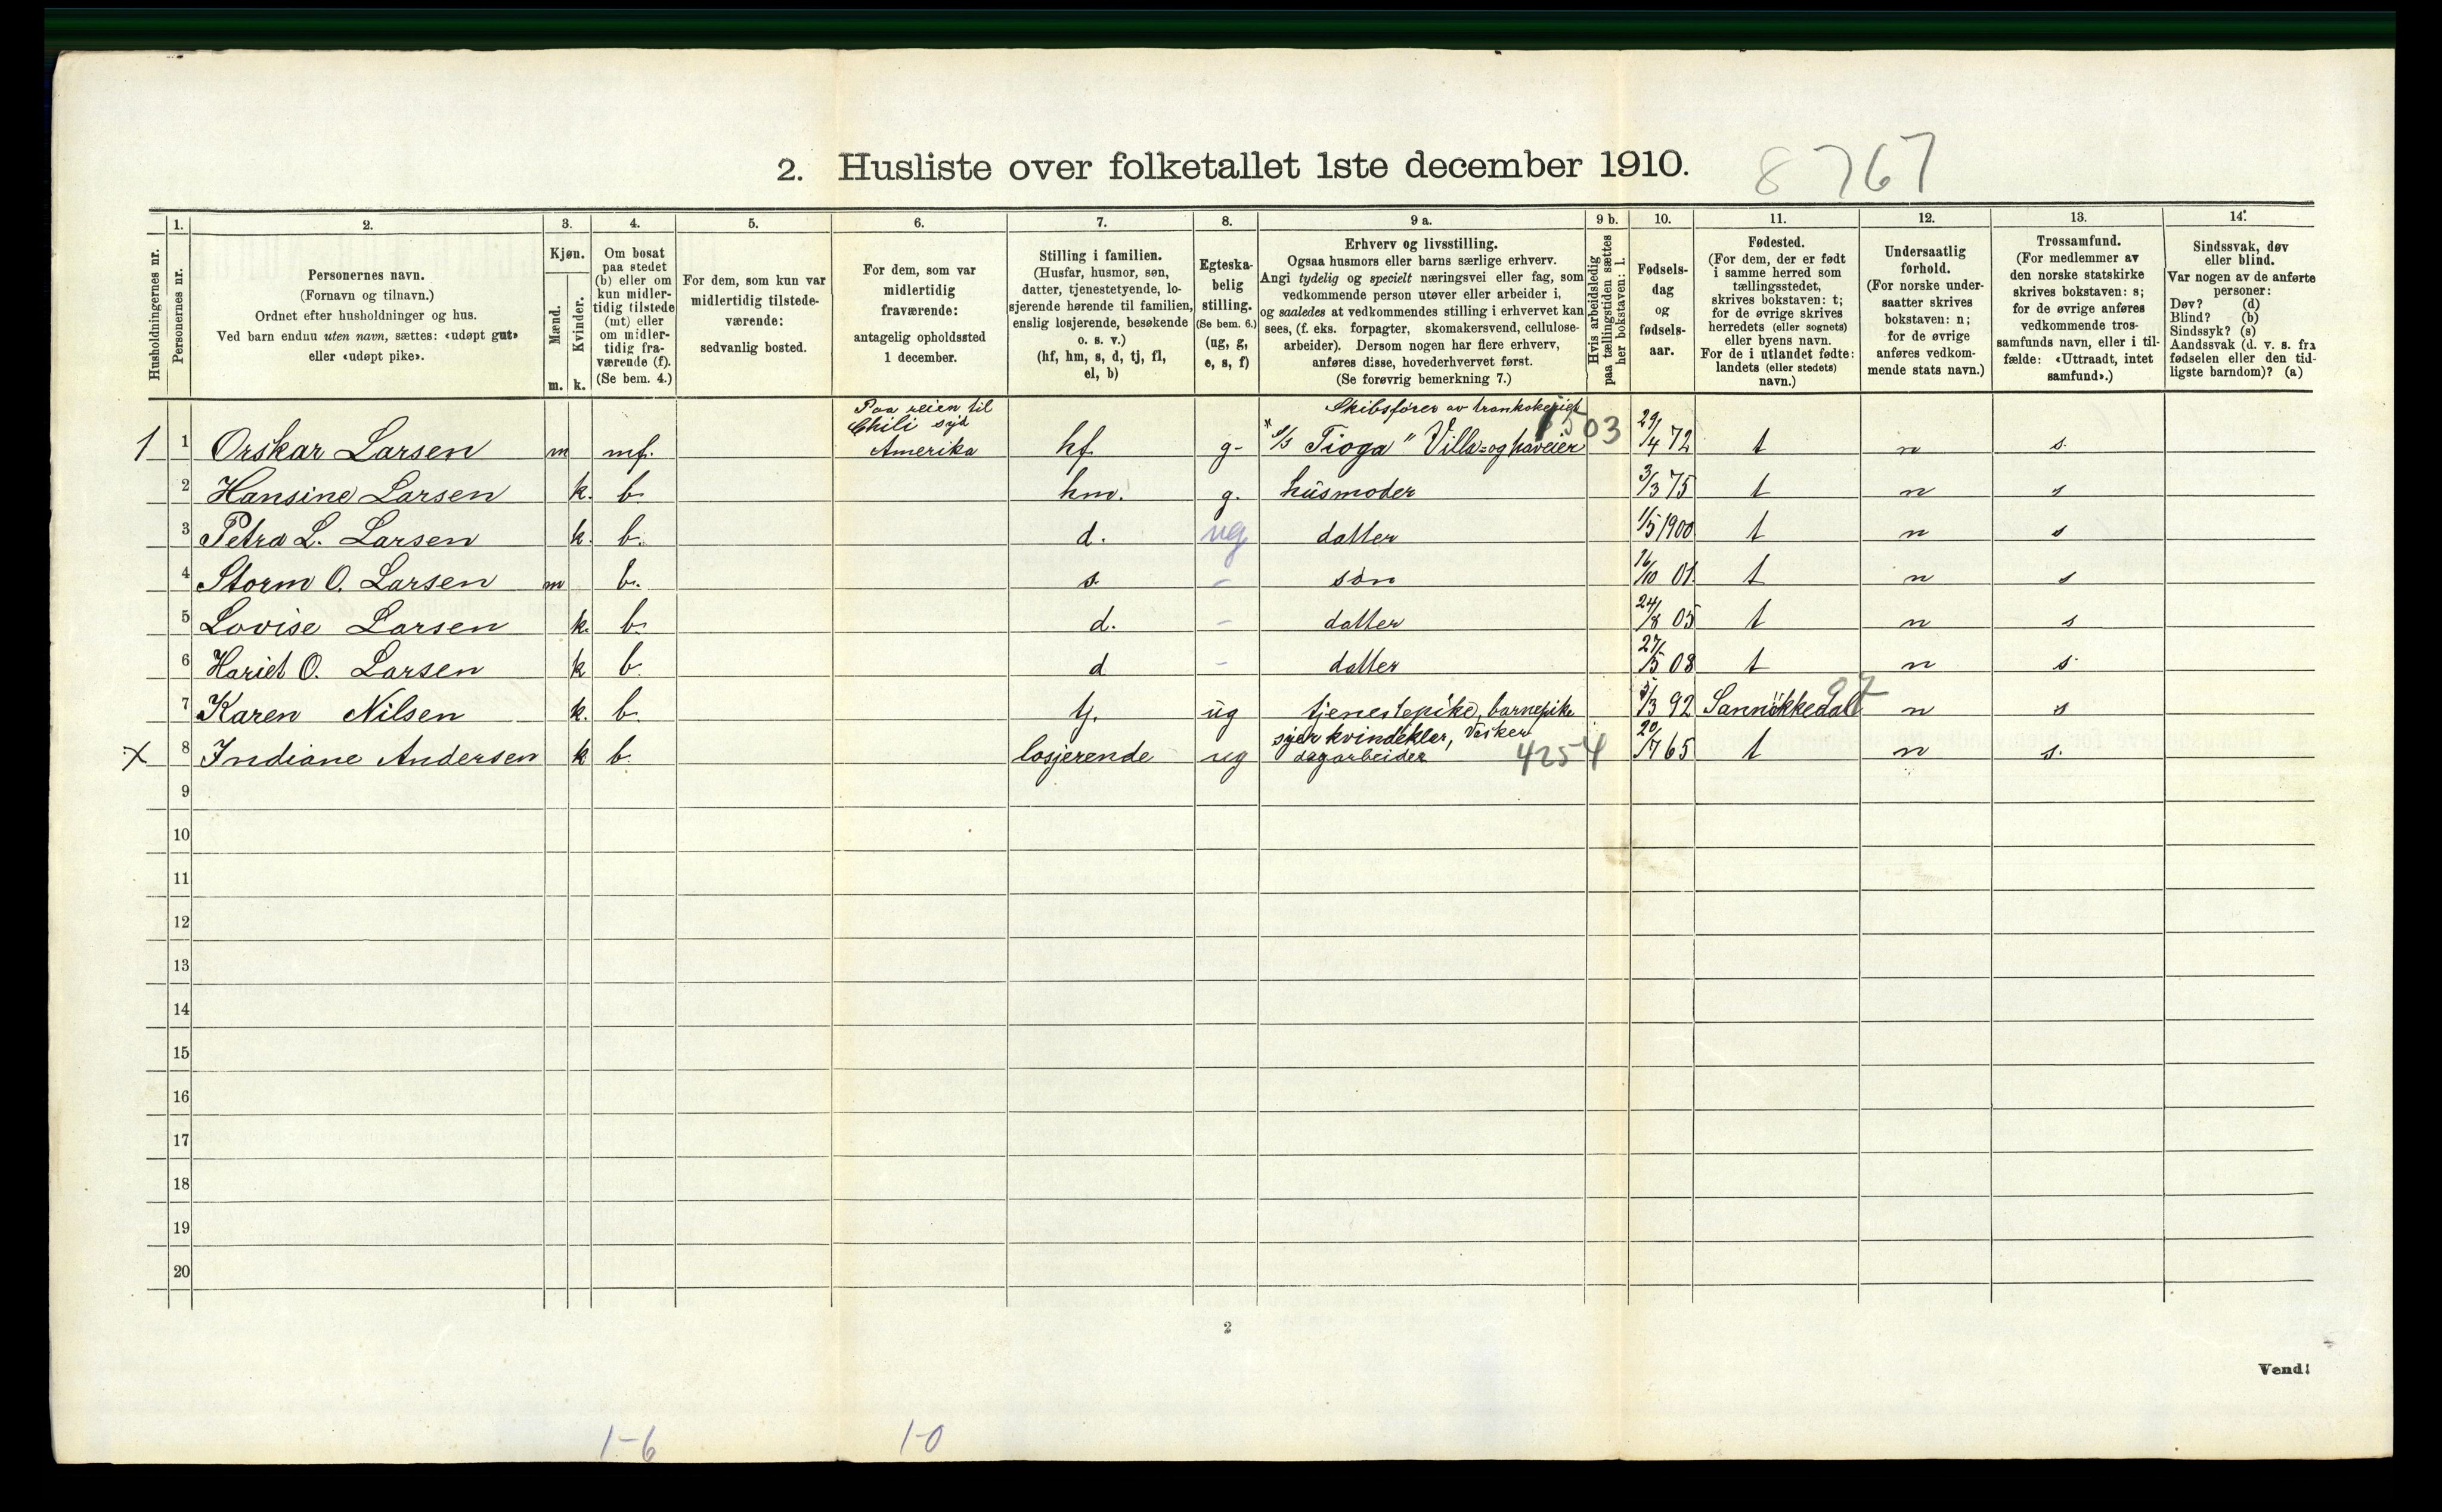 2. Husliste over folketallet 1ste december 1910. 8767
Husholdningernes nr.
1.
Personernes nr.
2.
Personernes navn.
(Fornavn og tilnavn.)
Ordnet efter husholdninger og hus.
Ved barn endnu uten navn, sættes: «udøpt gut»
eller «udøpt pike».
3.
Kjøn.
Mænd.
m.
Kvinder.
k.
4.
Om bosat
paa stedet
(b) eller om
kun midler-
tidig tilstede
(mt) eller
om midler-
tidig fra-
værende (f).
(Se bem. 4.)
5.
For dem, som kun var
midlertidig tilstede-
værende:
sedvanlig bosted.
6.
For dem, som var
midlertidig
fraværende:
antagelig opholdssted
1 december.
7.
Stilling i familien.
(Husfar, husmor, søn,
datter, tjenestetyende, lo-
sjerende hørende til familien,
enslig losjerende, besøkende
o. s. v.)
(hf, hm, s, d, tj, fl,
el, b)
8.
Egteska-
belig
stilling.
(Se bem. 6.)
(ug, g,
e, s, f)
9 a.
Erhverv og livsstilling.
Ogsaa husmors eller barns særlige erhverv.
Angi tydelig og specielt næringsvei eller fag, som
vedkommende person utøver eller arbeider i,
og saaledes at vedkommendes stilling i erhvervet kan
sees, (f. eks. forpagter, skomakersvend, cellulose-
arbeider). Dersom nogen har flere erhverv,
anføres disse, hovederhvervet først.
(Se forøvrig bemerkning 7.)
9 b.
Hvis arbeidsledig
paa tællingstiden sættes
her bokstaven: l.
10.
Fødsels-
dag
og
fødsels-
aar.
11.
Fødested.
(For dem, der er født
i samme herred som
tællingsstedet,
skrives bokstaven: t;
for de øvrige skrives
herredets (eller sognets)
eller byens navn.
For de i utlandet fødte:
landets (eller stedets)
navn.)
12.
Undersaatlig
forhold.
(For norske under-
saatter skrives
bokstaven: n;
for de øvrige
anføres vedkom-
mende stats navn.)
13.
Trossamfund.
(For medlemmer av
den norske statskirke
skrives bokstaven: s;
for de øvrige anføres
vedkommende tros-
samfunds navn, eller i til-
fælde: «Uttraadt, intet
samfund».)
14.
Sindssvak, døv
eller blind.
Var nogen av de anførte
personer:
Døv? (d)
Blind? (b)
Sindssyk? (s)
Aandssvak (d. v. s. fra
fødselen eller den tid-
ligste barndom)? (a)
Paa reien til Skibsfører av trankokeriet
Chili syd 1503
1 1 Orskar Larsen m mf. Amerika hf g- * s/s Tioga" Villa=og haveier 29/4 72 t n s.
2 Hansine Larsen k. b. hm. g. husmoder 3/3 75 t n s
3 Petra L. Larsen k. b. d. ug datter 1/5 1900 t n s
4 Storm O. Larsen m b. s. - søn 16/10 01 t n s
5 Lovise Larsen k. b. d. - datter 24/8 05 t n s
6 Hariet O. Larsen k b. d - datter 27/5 08 t n s.
7 Karen Nilsen k. b. tj. ug tjenestepike, barnepike 5/3 92 Sannikkedal 07 n s
syer kvindeklær, Vasker
x 8 Indiane Andersen k b. losjerende ug dagarbeider 4254 20/7 65 t n s.
9
10
11
12
13
14
15
16
17
18
19
20
2
Vend!
1-6 1-0